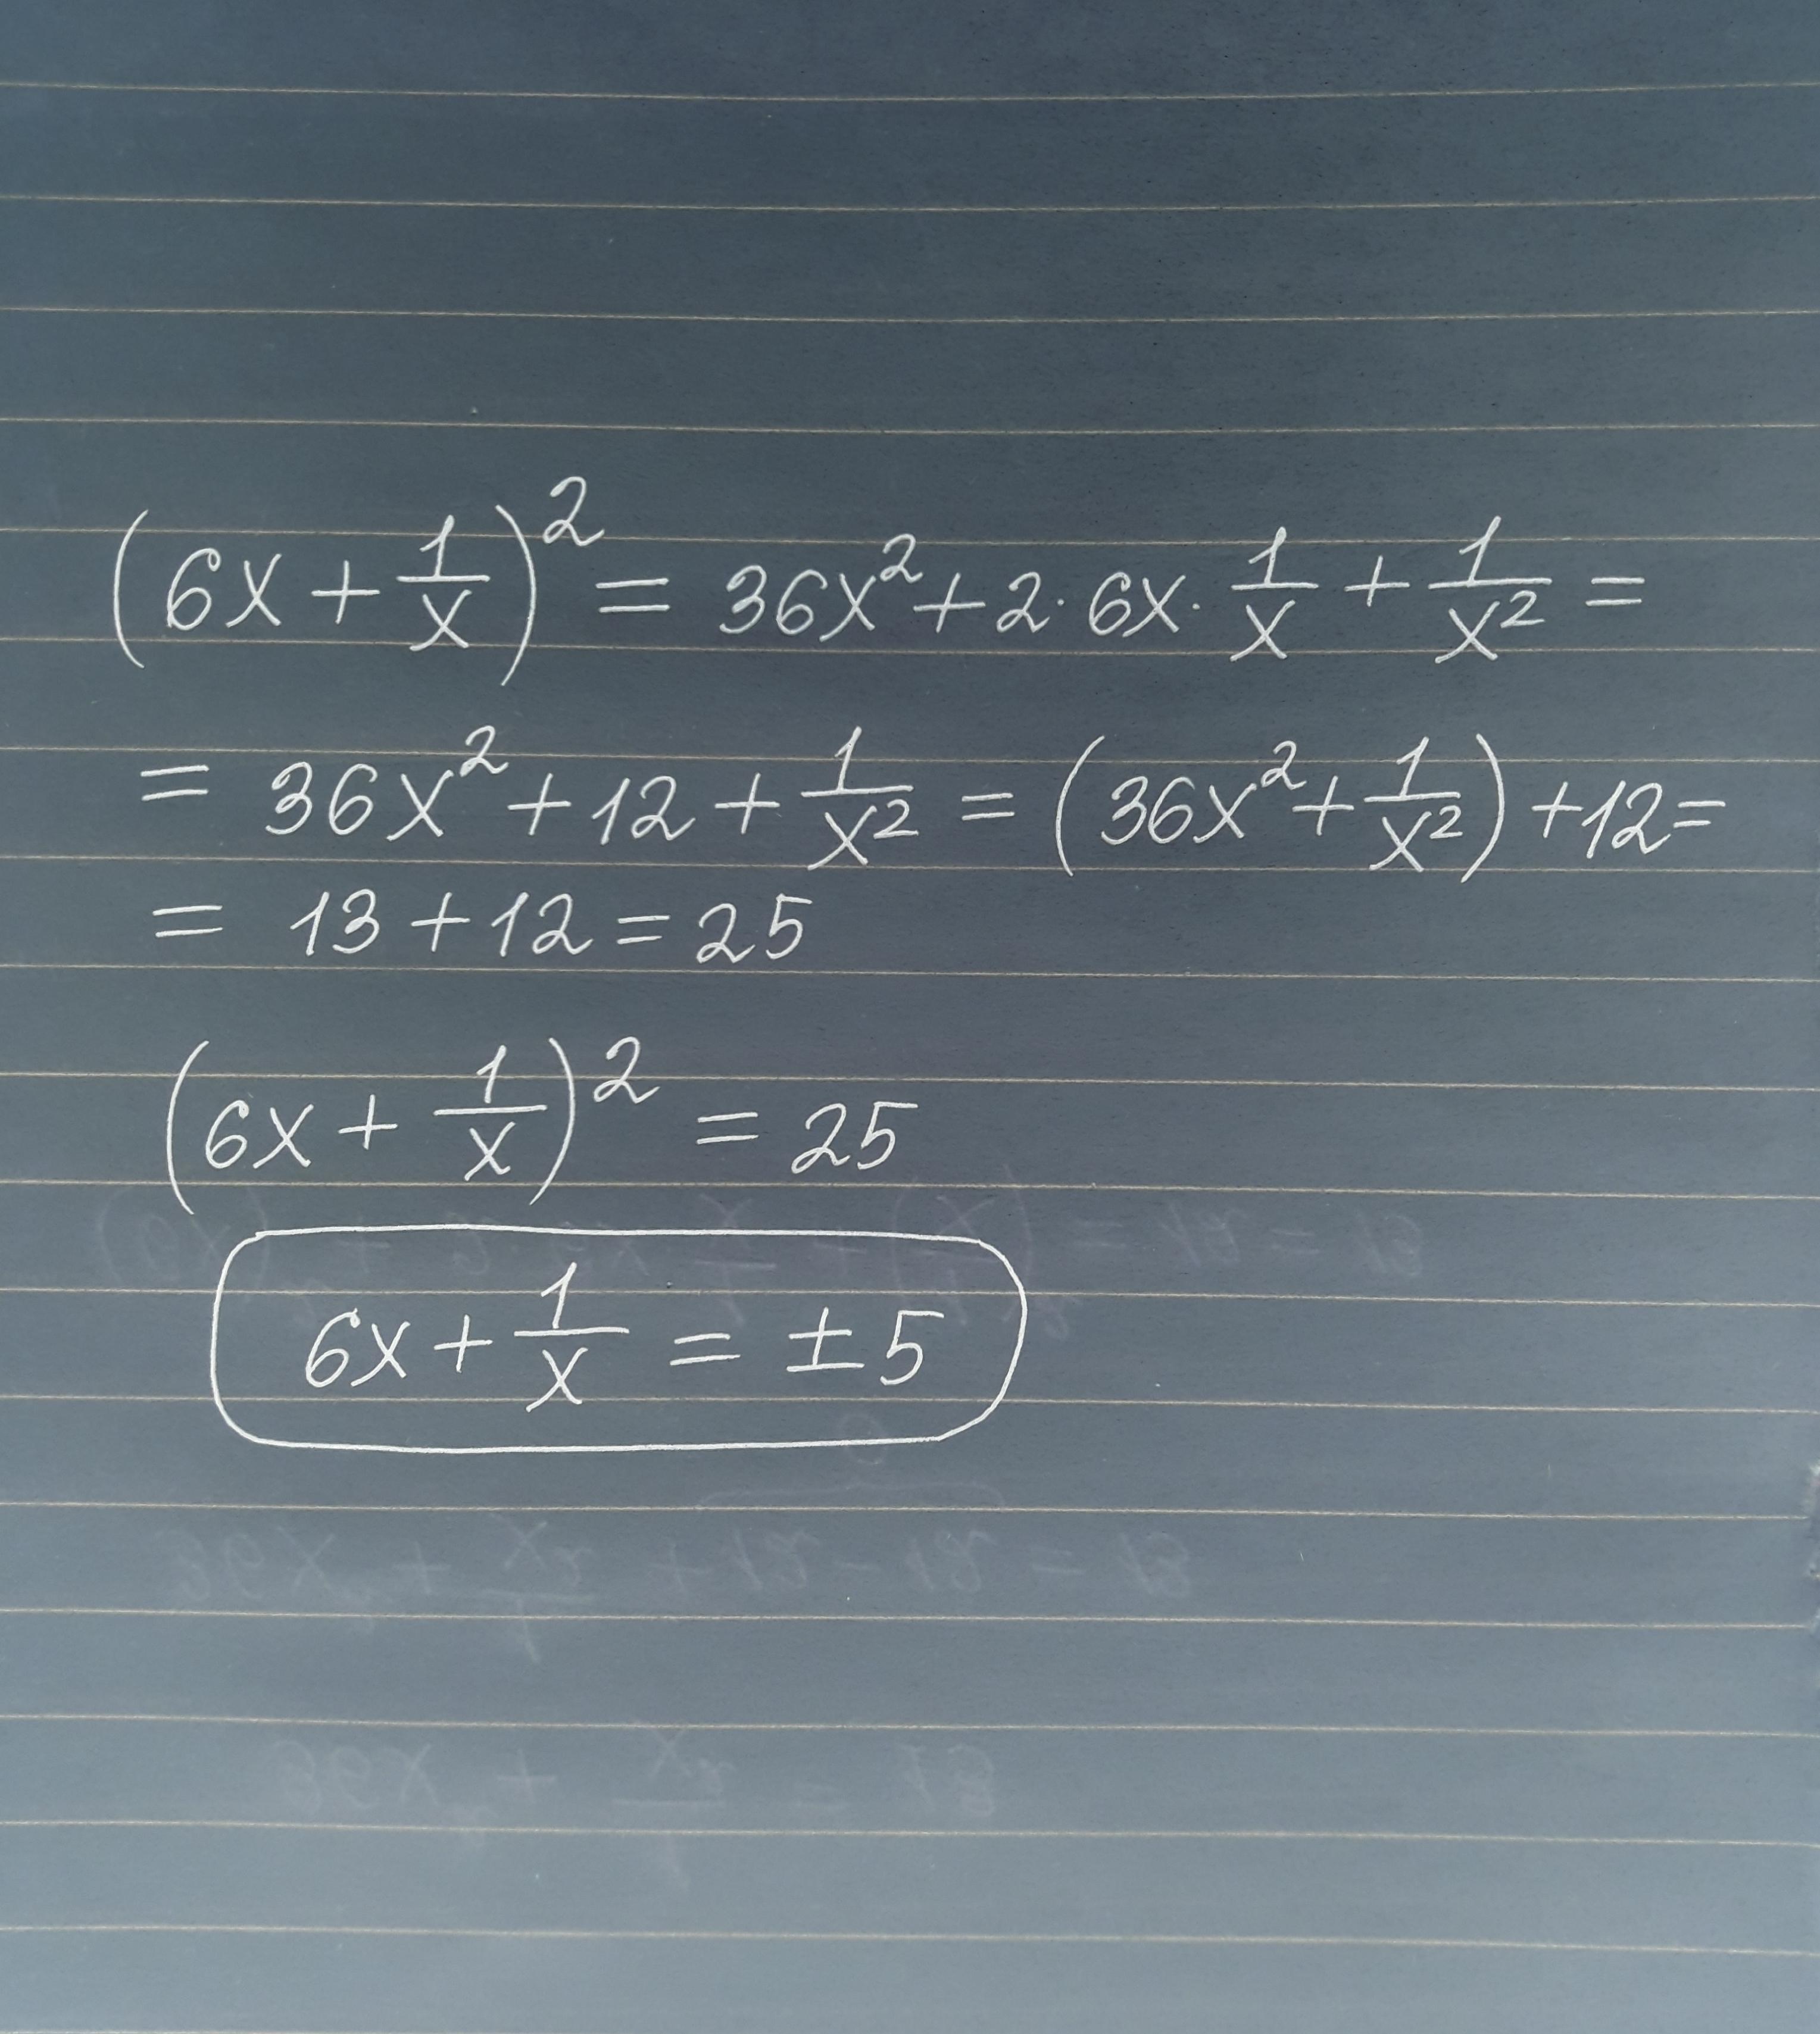 (6x + 1/x)² = 36x² + 2 · 6x · 1/x + 1/x² =
= 36x² + 12 + 1/x² = (36x² + 1/x²) + 12 =
= 13 + 12 = 25
(6x + 1/x)² = 25
6x + 1/x = ± 5